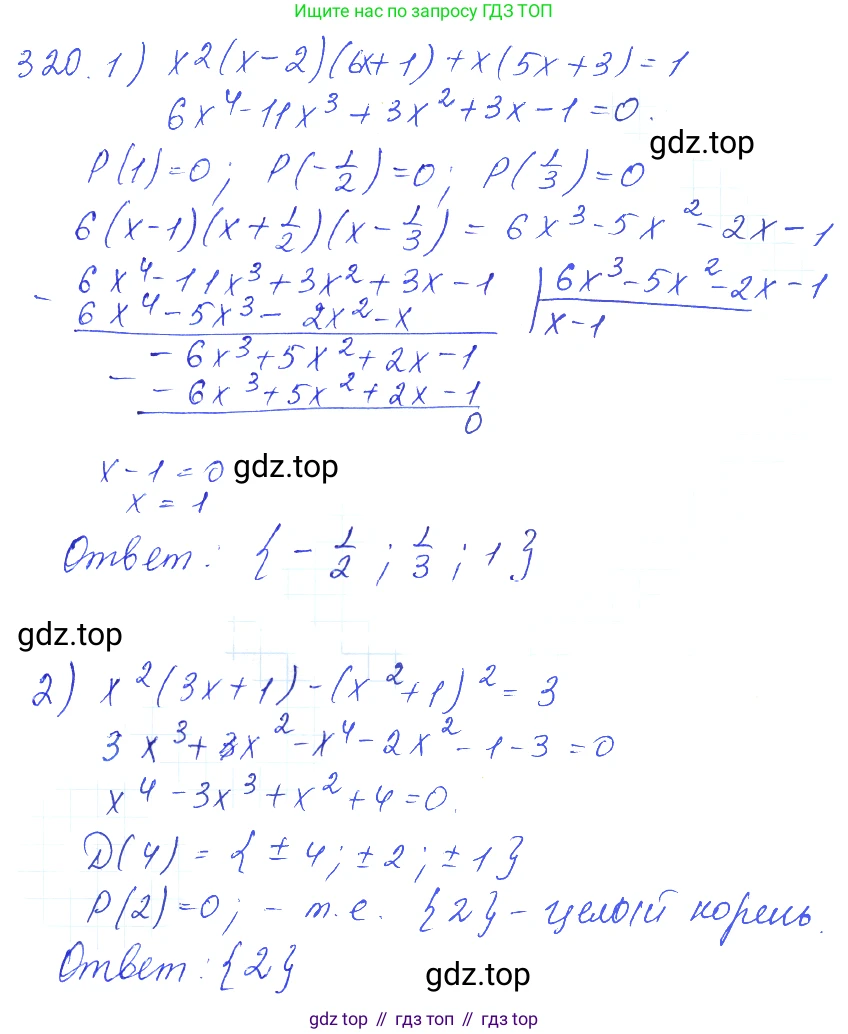 Ищите нас по запросу ГДЗ ТОП
320. 1) x²(x-2)(6x+1)+x(5x+3)=1
6x⁴-11x³+3x²+3x-1=0.
gdz.top
P(1)=0; P(-1/2)=0; P(1/3)=0
6(x-1)(x+1/2)(x-1/3) = 6x³-5x²-2x-1
- 6x⁴-11x³+3x²+3x-1 | 6x³-5x²-2x-1
6x⁴-5x³- 2x²-x x-1
-6x³+5x²+2x-1
- -6x³+5x²+2x-1
0
x-1=0 gdz.top
x = 1
Ответ: {-1/2; 1/3; 1}
gdz.top
2) x²(3x+1)-(x²+1)²=3
3x³+3x²-x⁴-2x²-1-3=0
x⁴-3x³+x²+4=0.
D(4) = {±4; ±2; ±1}
P(2)=0; - т.е. {2} - целый корень.
Ответ: {2}
gdz.top
gdz top // гдз топ // gdz top